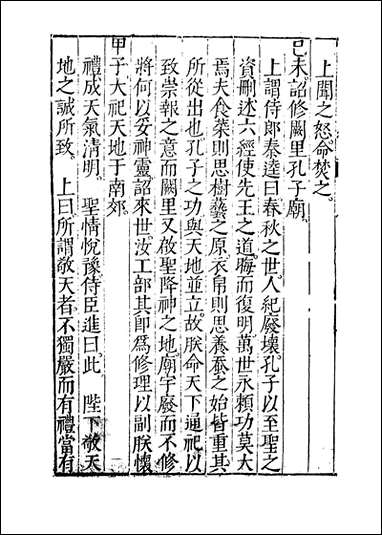 上聞之怒命焚之
己未詔修闕里孔子廟
上謂侍郎秦逵曰春秋之世人紀廢壞孔子以至聖之
資刪述六經使先王之道晦而復明萬世永賴功莫大
焉夫食粟則思樹藝之原衣帛則思養蚕之始皆重其
所從出也孔子之功與天地並立故朕命天下通祀以
致崇報之意而闕里又啟聖降神之地廟宇廢而不修
將何以妥神靈詔來世汝工部其即為修理以副朕懷
甲子大祀天地于南郊
禮成天氣清明 聖情悅豫侍臣進曰此 陛下敬天
地之誠所致 上曰所謂敬天者不獨嚴而有禮當有